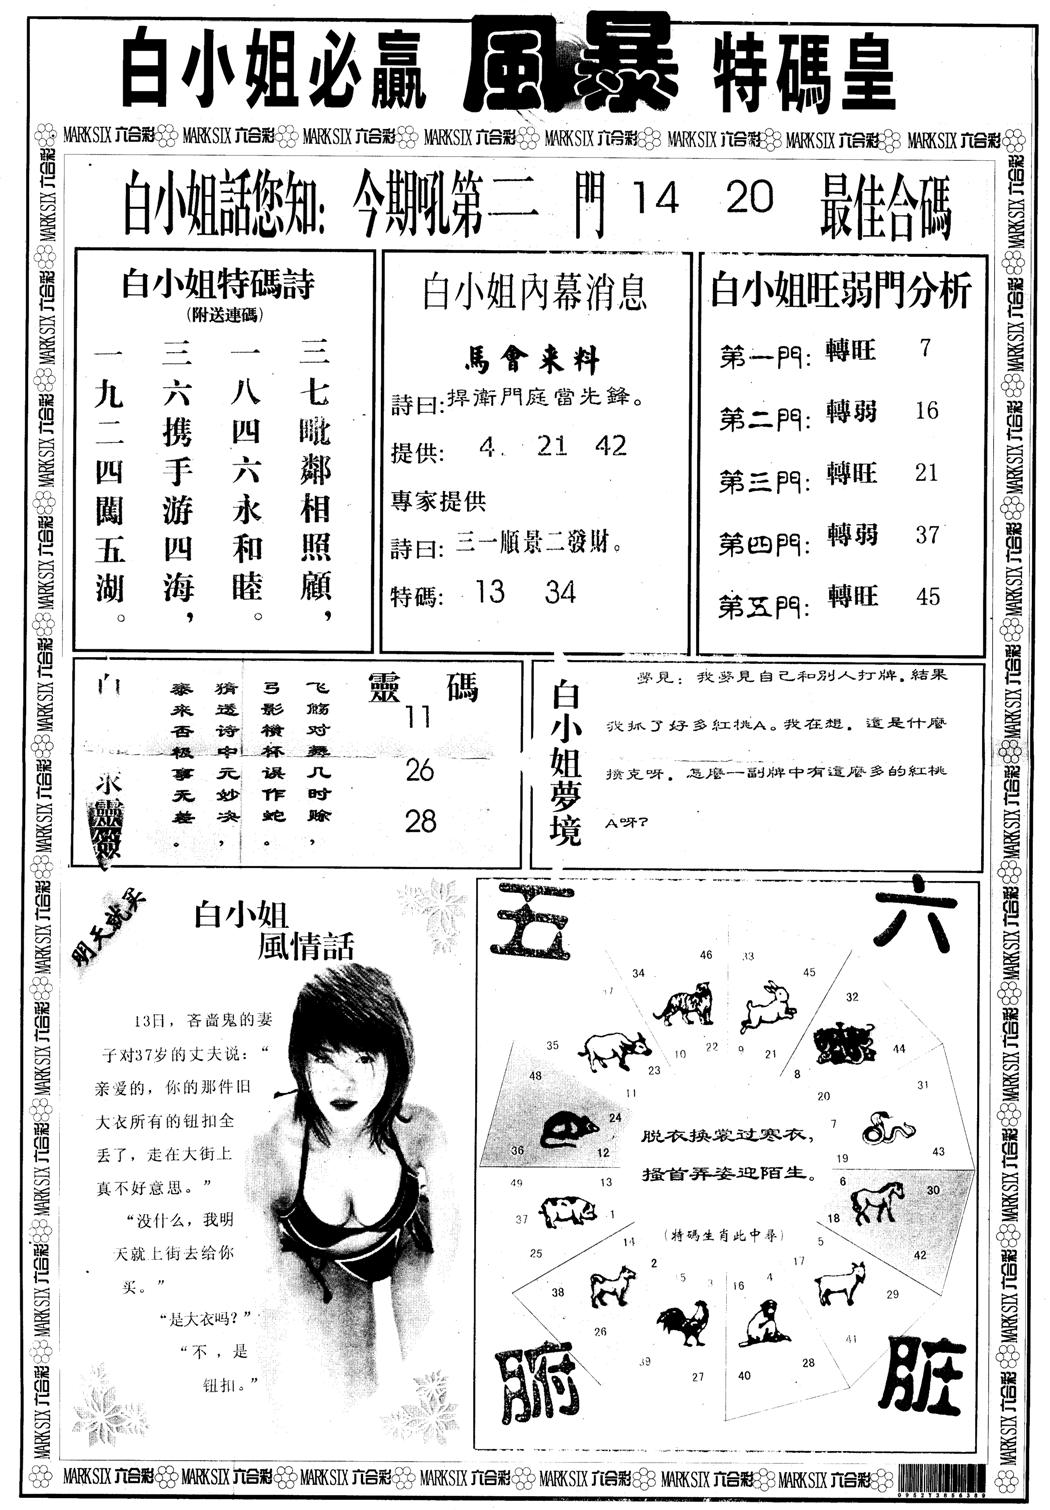 白小姐必贏 風暴 特碼皇
MARK SIX 六合彩 MARK SIX 六合彩 MARK SIX 六合彩 MARK SIX 六合彩 MARK SIX 六合彩 MARK SIX 六合彩 MARK SIX 六合彩 MARK SIX 六合彩
白小姐話您知: 今期吼第二門 14 20 最佳合碼
白小姐特碼詩
(附送連碼)
三七毗鄰相照顧，
一八四六永和睦。
三六携手游四海，
一九二四闖五湖。
白小姐內幕消息
馬會来料
詩曰:捍衛門庭當先鋒。
提供: 4 21 42
專家提供
詩曰: 三一順景二發財。
特碼: 13 34
白小姐旺弱門分析
第一門: 轉旺 7
第二門: 轉弱 16
第三門: 轉旺 21
第四門: 轉弱 37
第五門: 轉旺 45
求靈籤
靈碼
11
26
28
弓影横杯误作蛇。
猜透诗中元妙决，
泰来否极事无差。
白小姐夢境
夢見：我夢見自己和別人打牌，結果
我抓了好多紅桃A。我在想，這是什麼
撲克呀，怎麼一副牌中有這麼多的紅桃
A呀?
明天就买
白小姐
風情話
13日，吝啬鬼的妻
子对37岁的丈夫说：“
亲爱的，你的那件旧
大衣所有的钮扣全
丢了，走在大街上
真不好意思。”
“没什么，我明
天就上街去给你
买。”
“是大衣吗？”
“不，是
钮扣。”
五 六
46 33
34 45
32
35 10 22 9 21 44
48 23 8
11 20 31
24 7
36 12 19 43
脱衣换裳过寒衣，
搔首弄姿迎陌生。
49 13 6 30
37 1 18
25 14 5 42
(特碼生肖此中尋)
2 5 3 16 4 17
38 29
26 41
39 27 40 28
腑 脏
MARK SIX 六合彩 MARK SIX 六合彩 MARK SIX 六合彩 MARK SIX 六合彩 MARK SIX 六合彩 MARK SIX 六合彩 MARK SIX 六合彩